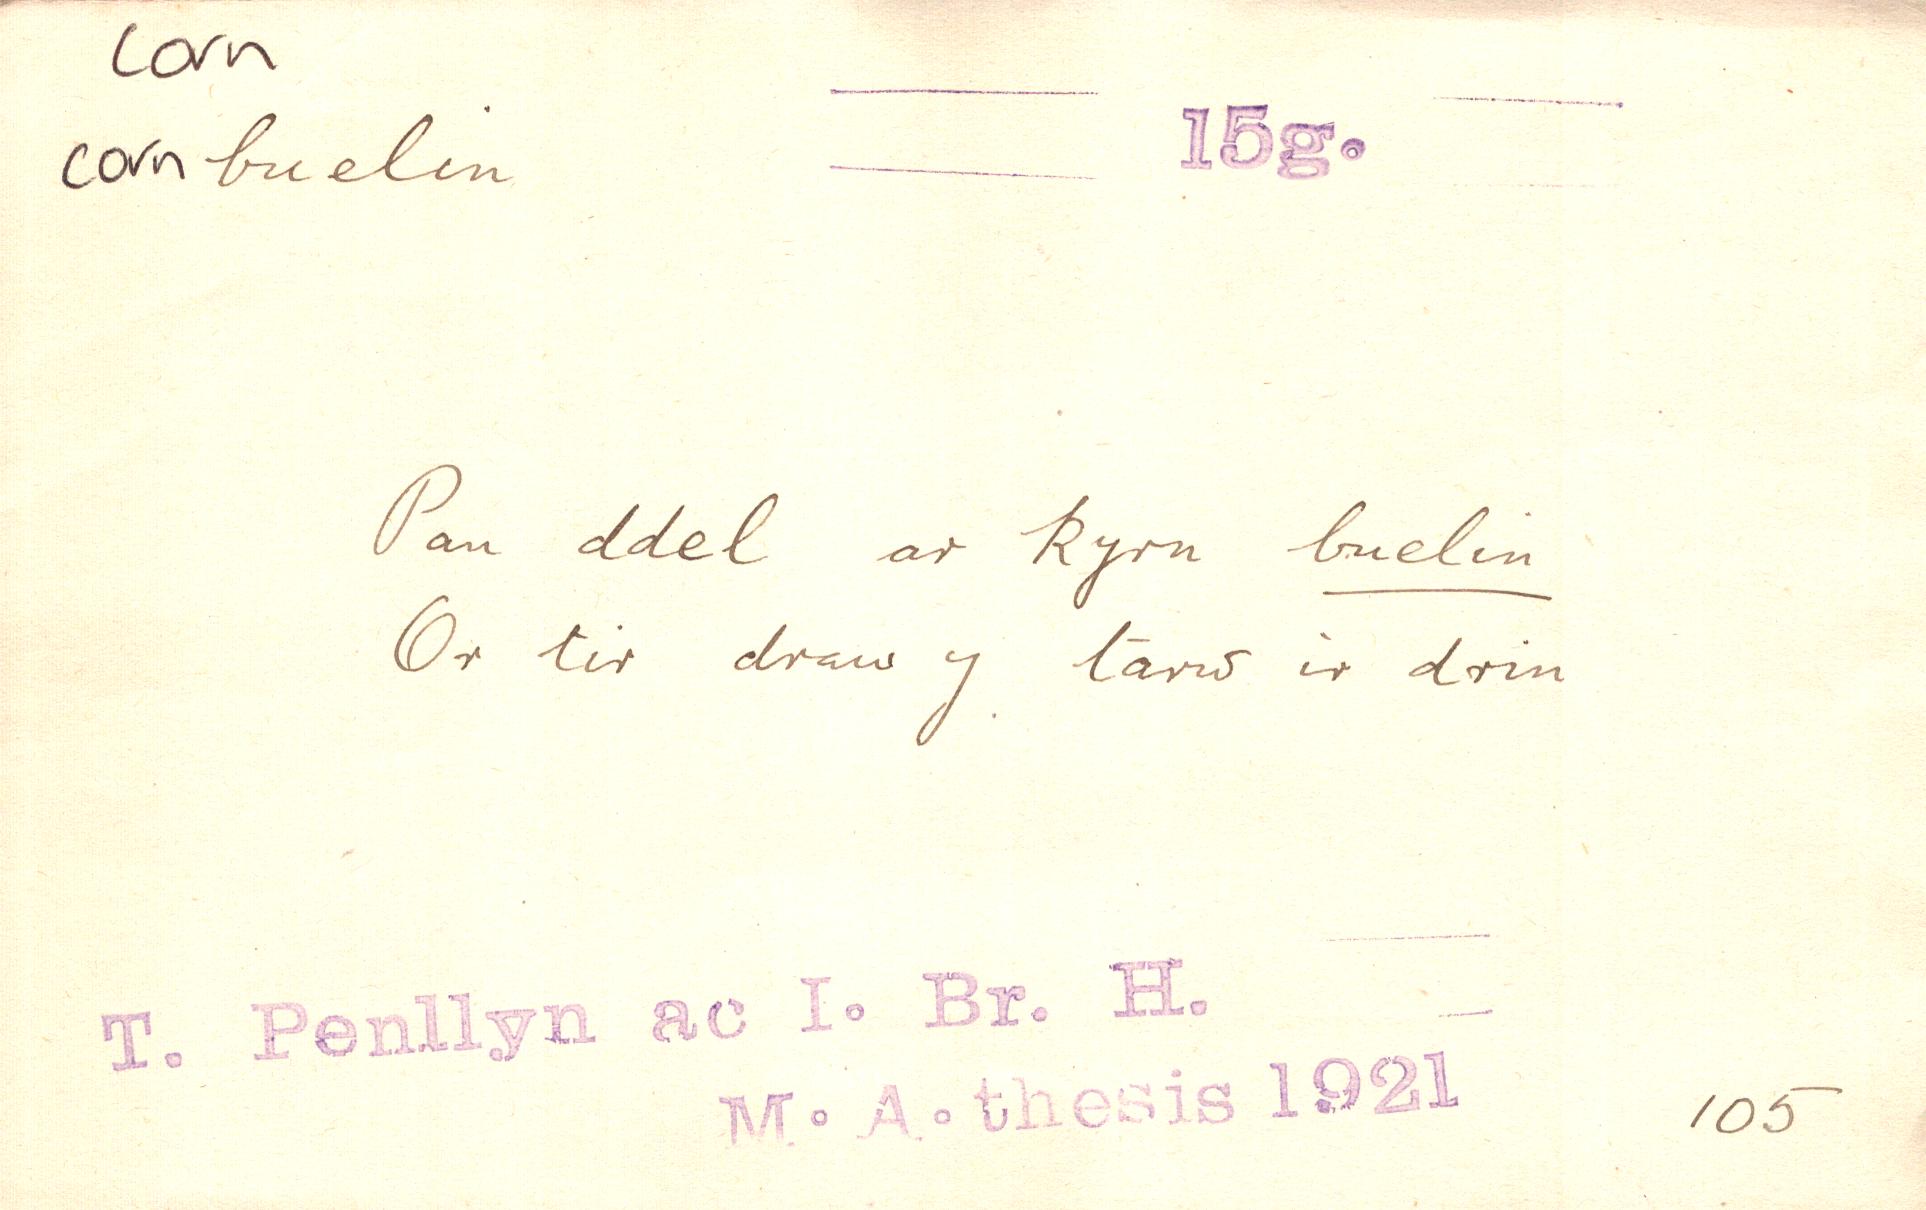 corn
corn buelin
15g.
Pan ddel ar kyrn buelin
Or tir draw y tarw ir drin
T. Penllyn ac I. Br. H.
M. A. thesis 1921
105